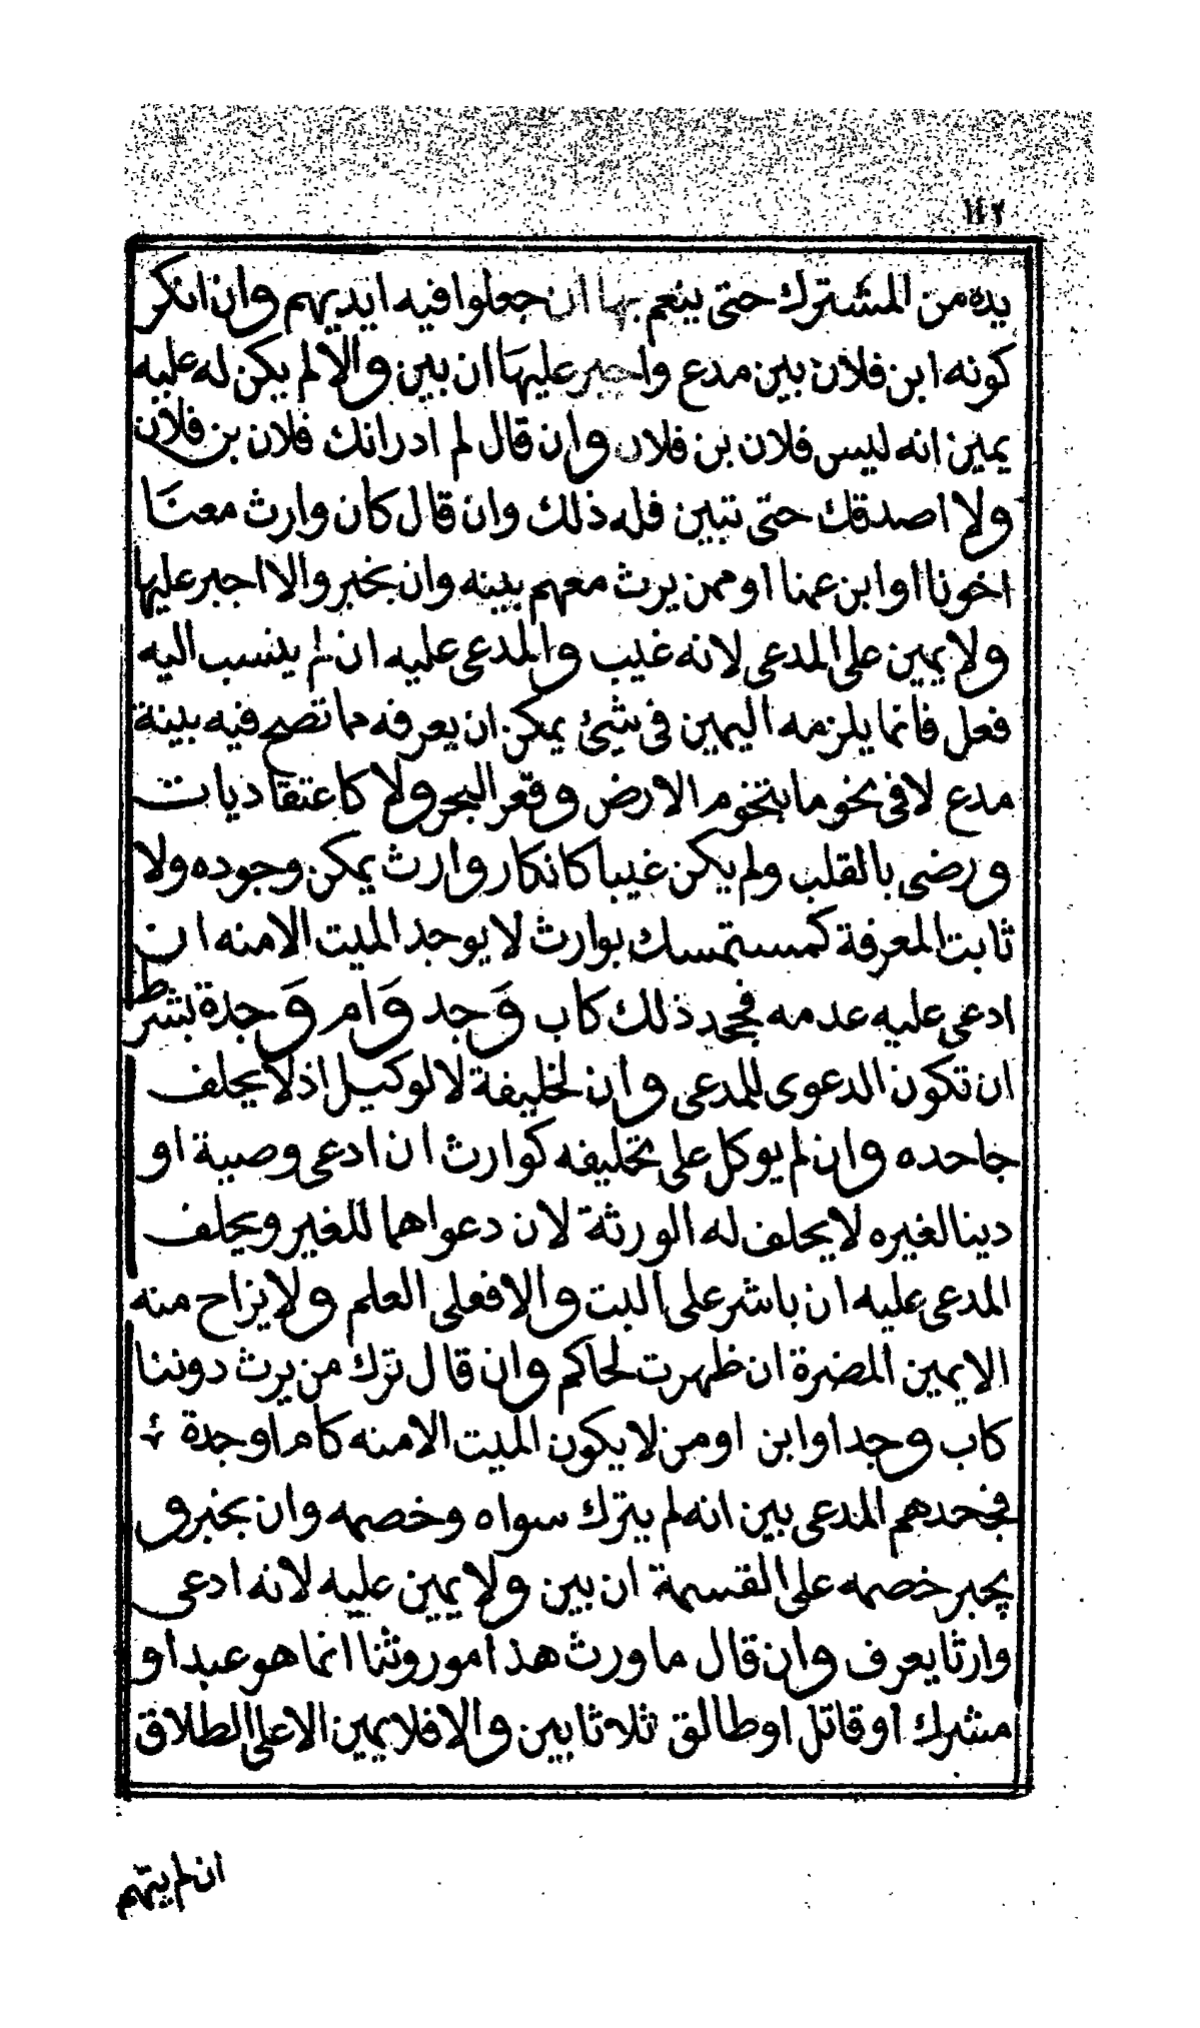 ١١٢
يده من المشترك حتى ينعم بها ان جعلوا فيه ايديهم وان انكر
كونه ابن فلان بين مدع واجبر عليها ان بين والا لم يكن له عليه
يمين انه ليس فلان بن فلان وان قال لم ادر انك فلان بن فلان
ولا اصدقك حتى تبين فله ذلك وان قال كان وارث معنا
اخونا او ابن عمنا او ممن يرث معهم بينه وان بخبر والا اجبر عليها
ولا يمين على المدعى لانه غيب والمدعى عليه ان لم ينسب اليه
فعل فانما يلزمه اليمين فى شيئ يمكن ان يعرفه مما تصح فيه بينة
مدع لا فى نحو ما بتخوم الارض وقعر البحر ولا كاعتقاديات
ورضى بالقلب ولم يكن غيبا كانكار وارث يمكن وجوده ولا
ثابت المعرفة كمستمسك بوارث لا يوجد الميت الا منه ان
ادعى عليه عدمه فجحد ذلك كاب وجد وام وجدة بشرط
ان تكون الدعوى للمدعى وان لخليفة لا لوكيل اذ لا يحلف
جاحده وان لم يوكل على تحليفه كوارث ان ادعى وصية او
دينا لغيره لا يحلف له الورثة لان دعواهما للغير ويحلف
المدعى عليه ان باشر على البت والا فعلى العلم ولا يزاح منه
الا يمين المضرة ان ظهرت لحاكم وان قال ترك من يرث دوننا
كاب وجد او ابن او من لا يكون الميت الا منه كام او جدة
فجحدهم المدعى بين انه لم يترك سواه وخصمه وان بخبر و
يجبر خصمه على القسمة ان بين ولا يمين عليه لانه ادعى
وارثا يعرف وان قال ما ورث هذا موروثنا انما هو عبد او
مشرك او قاتل او طالق ثلاثا بين والا فلا يمين الا على الطلاق
ان لم يتهم